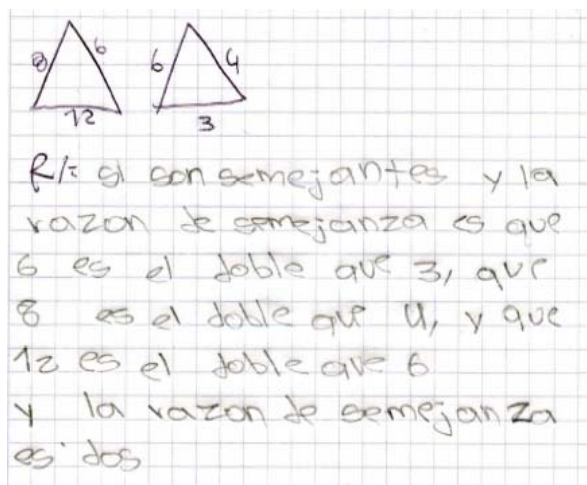 8 6 6 4
12 3
R/= si son semejantes y la
razon de semejanza es que
6 es el doble que 3, que
8 es el doble que 4, y que
12 es el doble que 6
y la razon de semejanza
es dos